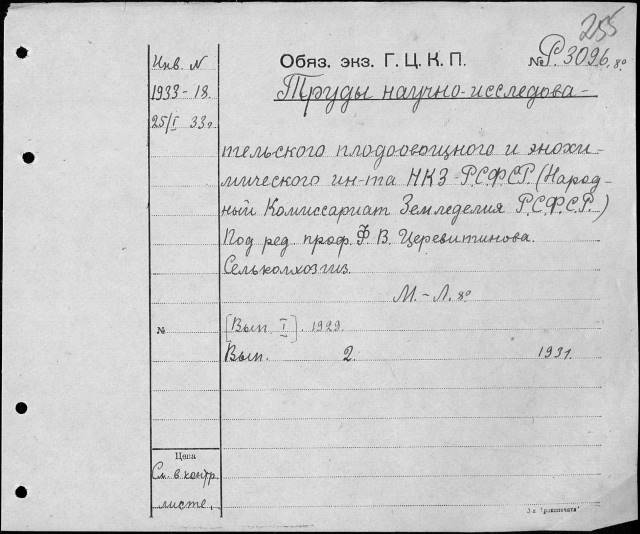 255
Инв. N
1933-18.
25/I 33г.
Обяз. экз. Г. Ц. К. П.
№ Р.3096. 8º
Труды научно-исследова-
тельского плодоовощного и энохи-
мического ин-та НКЗ Р.С.Ф.С.Р. (Народ-
ный Комиссариат Земледелия Р.С.Ф.С.Р.)
Под ред. проф. Ф. В. Церевитинова.
Сельколхозгиз.
М.-Л. 8º
№
[Вып I]. 1929.
Вып. 2 1931.
Цена
См. в контр.
листе.